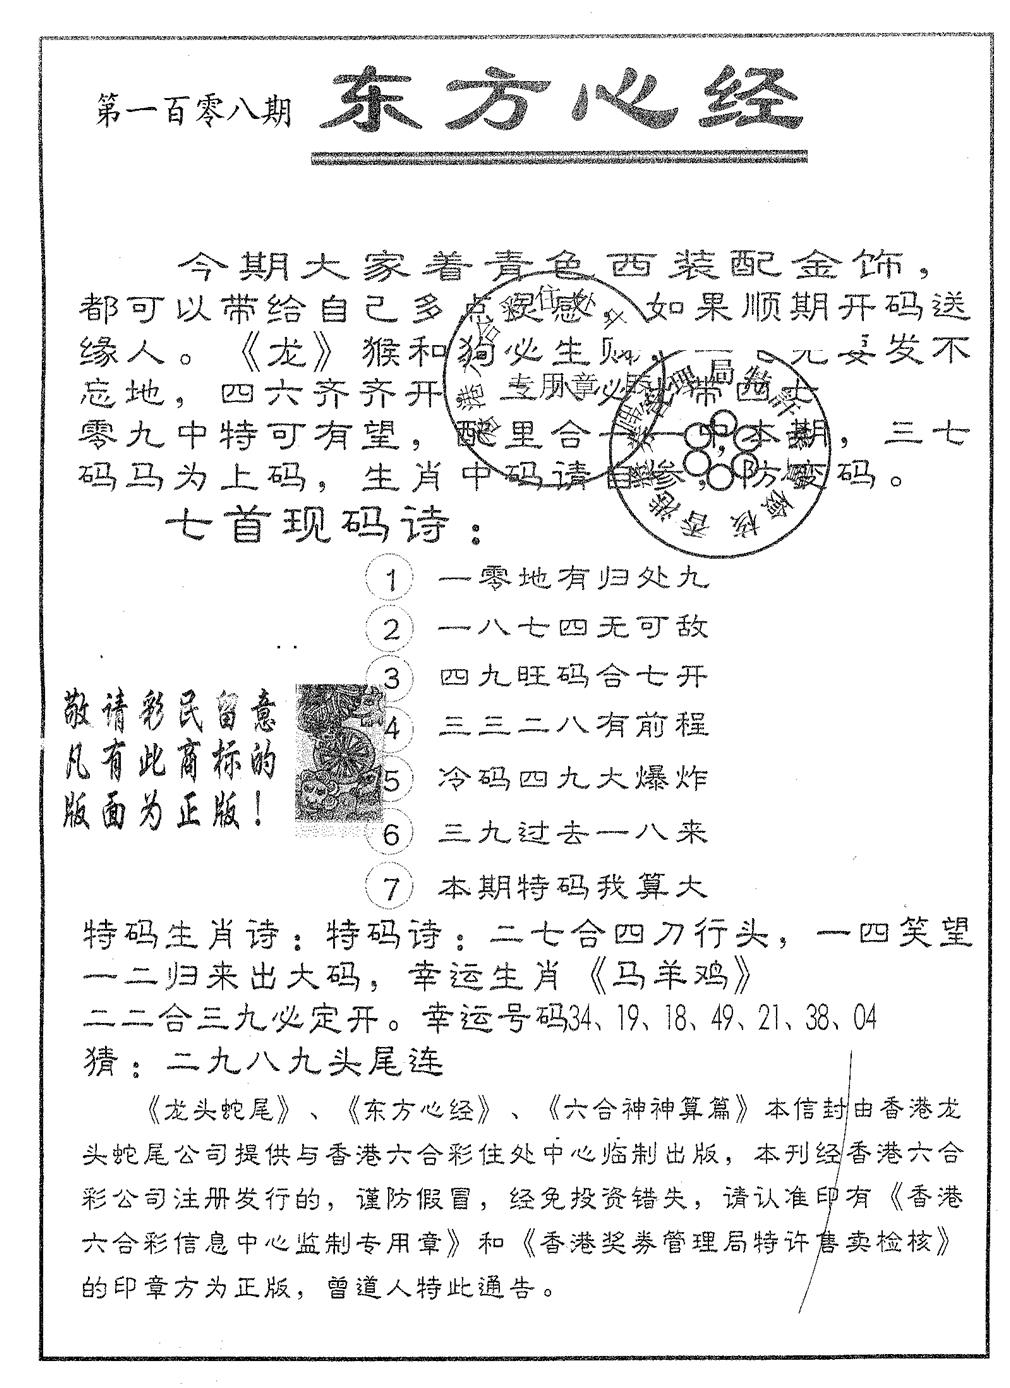 第一百零八期 东方心经
今期大家着青色西装配金饰，
都可以带给自己多点灵感。如果顺期开码送
缘人。《龙》猴和狗必生财，无要发不
忘地，四六齐齐开 必 带四七
零九中特可有望，配里合一 中本期，三七
码马为上码，生肖中码请自参，防变码。
七首现码诗：
1 一零地有归处九
2 一八七四无可敌
3 四九旺码合七开
4 三三二八有前程
5 冷码四九大爆炸
6 三九过去一八来
7 本期特码我算大
敬请彩民留意
凡有此商标的
版面为正版！
特码生肖诗：特码诗：二七合四刀行头，一四笑望
一二归来出大码，幸运生肖《马羊鸡》
二二合三九必定开。幸运号码34、19、18、49、21、38、04
猜：二九八九头尾连
《龙头蛇尾》、《东方心经》、《六合神神算篇》本信封由香港龙
头蛇尾公司提供与香港六合彩住处中心临制出版，本刊经香港六合
彩公司注册发行的，谨防假冒，经免投资错失，请认准印有《香港
六合彩信息中心监制专用章》和《香港奖券管理局特许售卖检核》
的印章方为正版，曾道人特此通告。
专用章